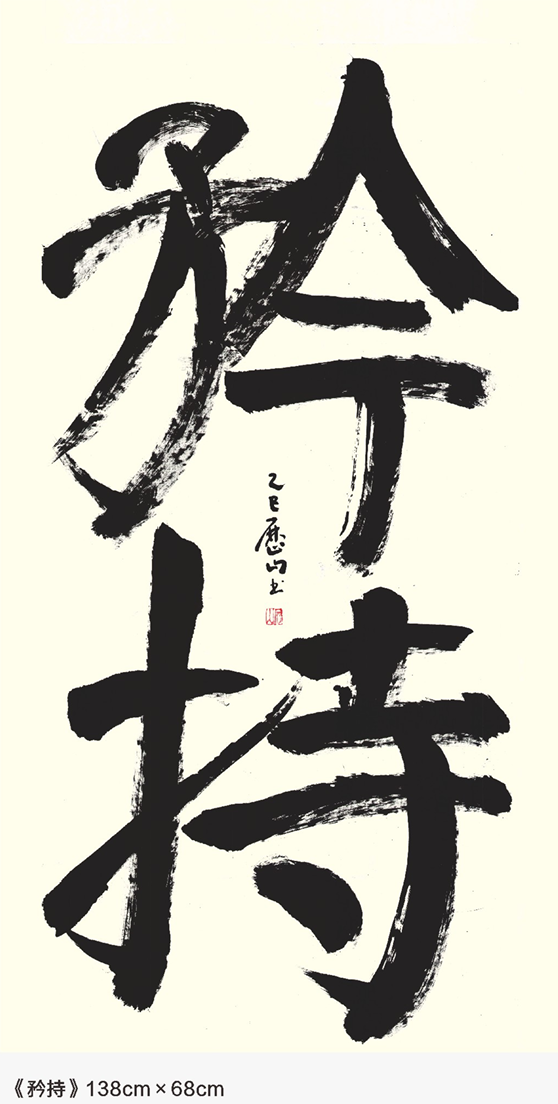 矜持
乙巳歷山书
《矜持》138cm×68cm